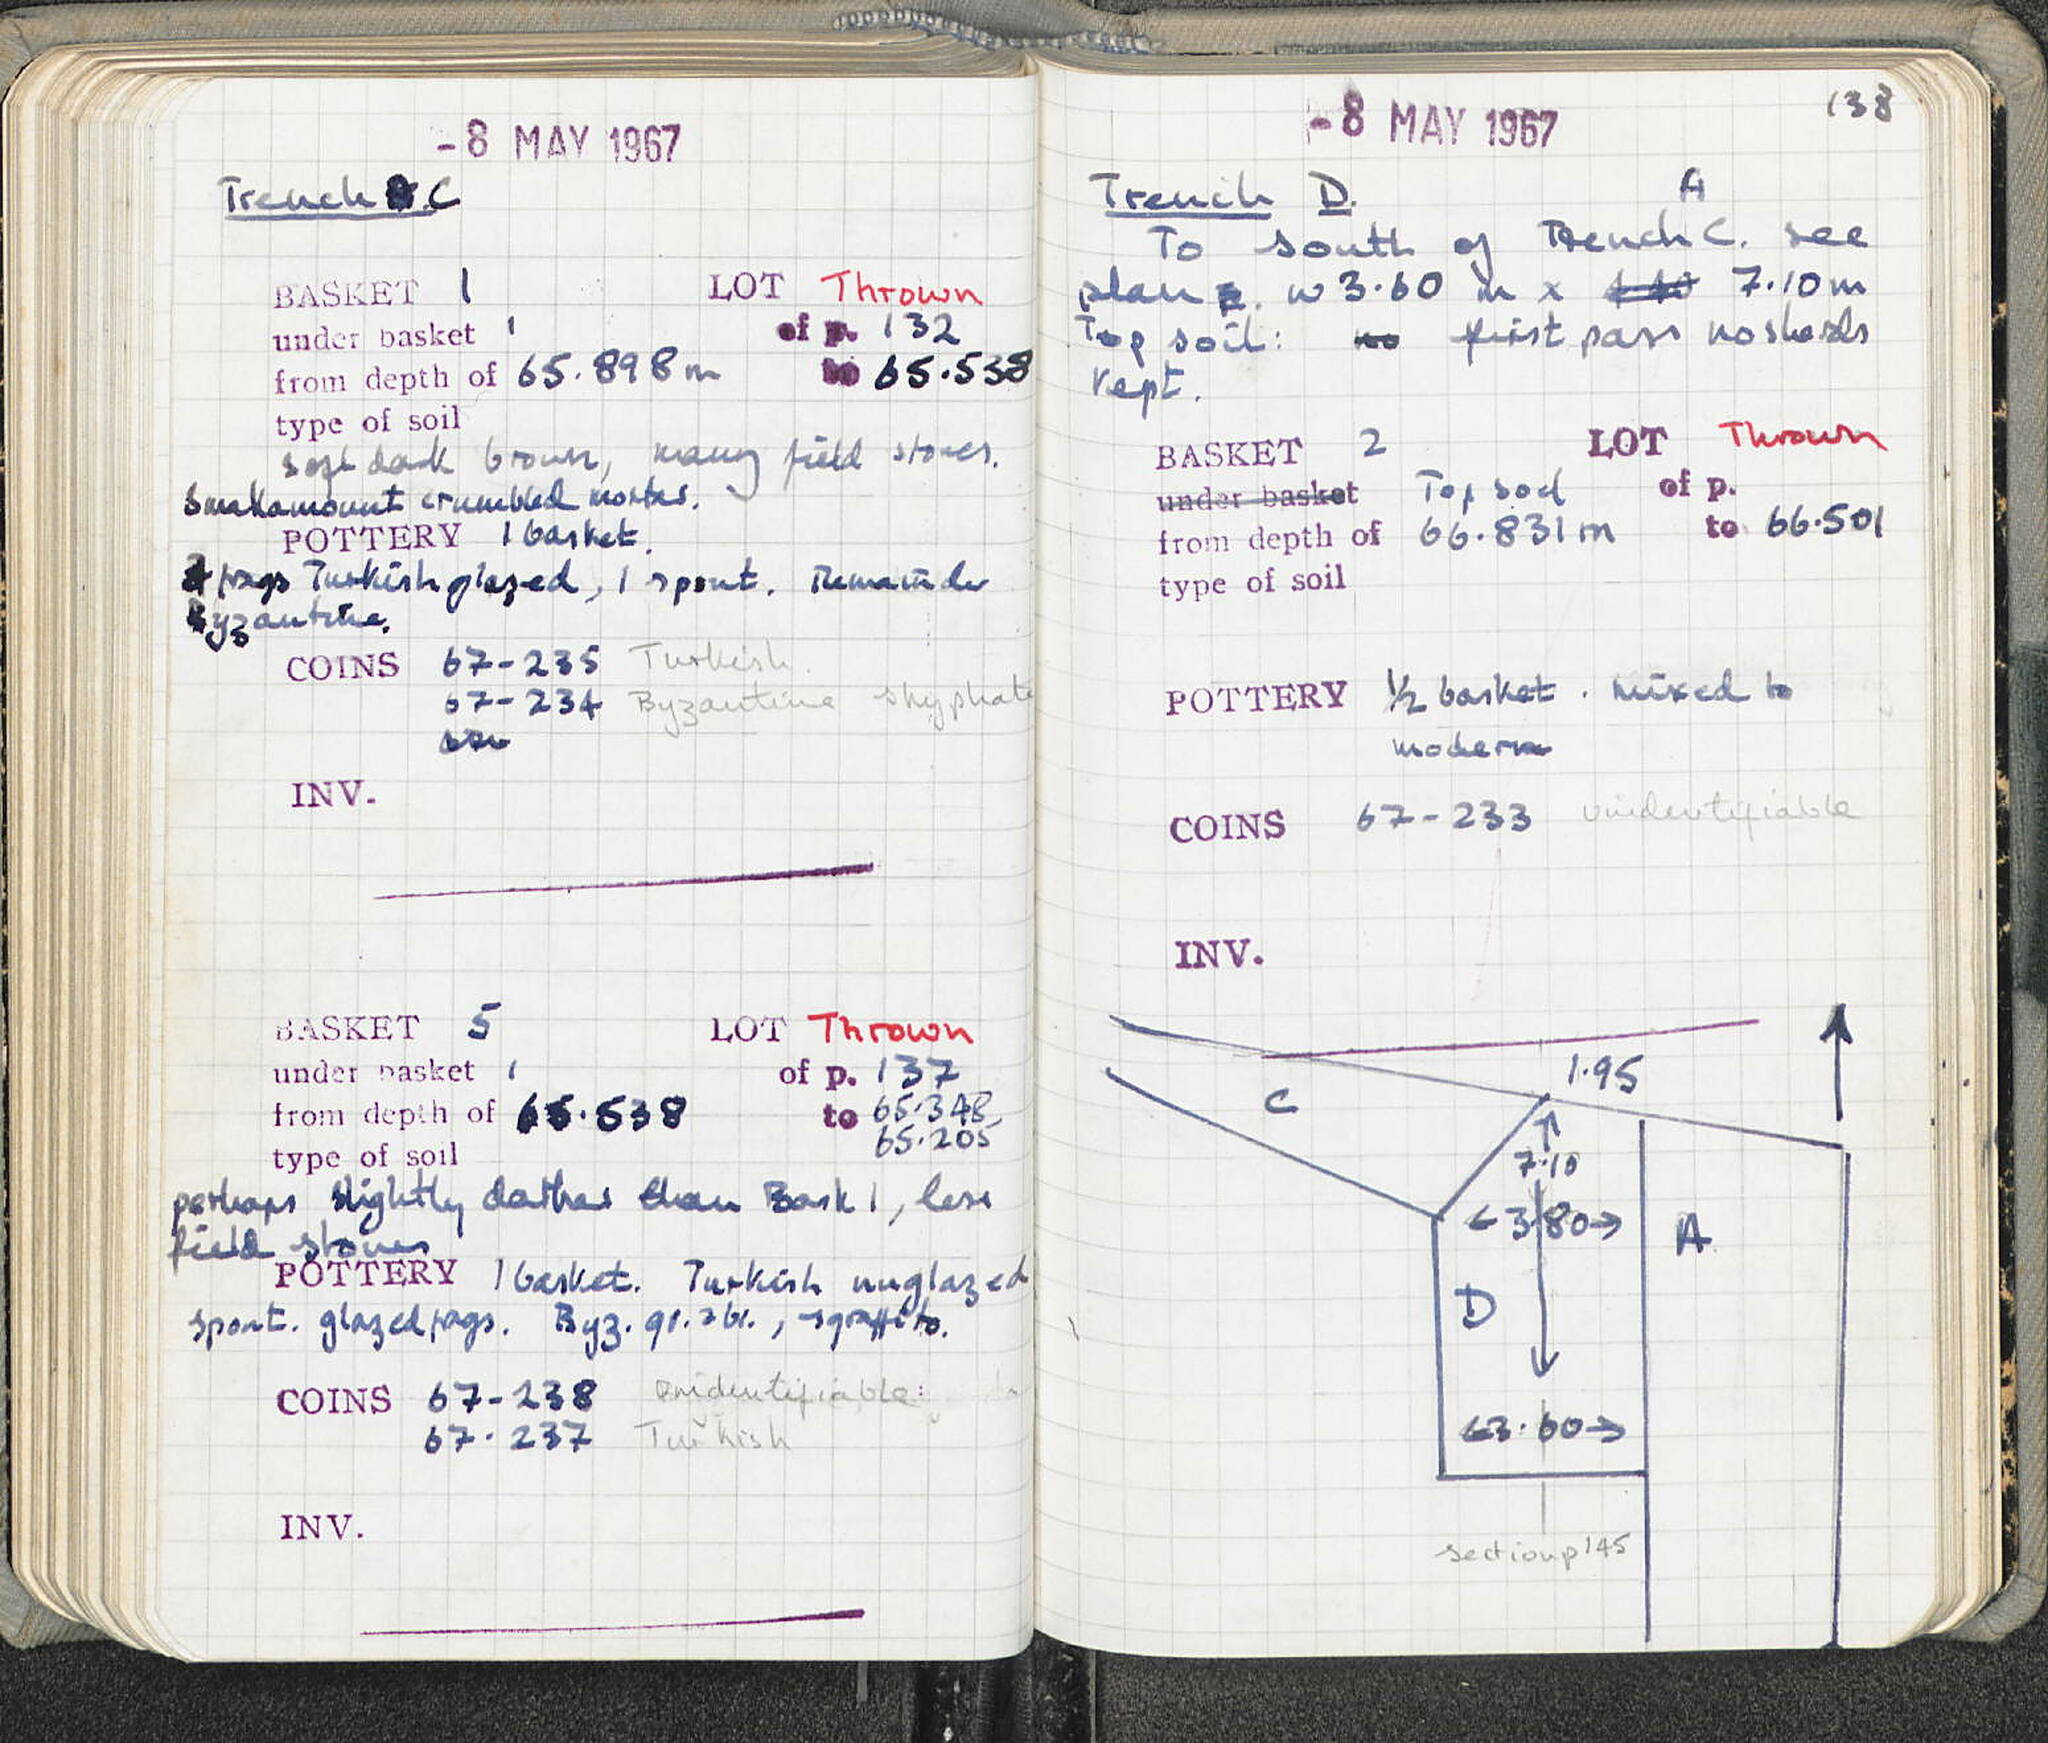 -8 MAY 1967
Trench C
BASKET 1 LOT Thrown
under basket 1 of p. 132
from depth of 65.898 m to 65.538
type of soil
soft dark brown, many field stones.
Small amount crumbled mortar.
POTTERY 1 basket.
frags Turkish glazed, 1 spout. Remainder
Byzantine.
COINS 67-235 Turkish.
67-234 Byzantine skyphate
INV.
BASKET 5 LOT Thrown
under basket 1 of p. 137
from depth of 65.538 to 65.348
65.205
type of soil
perhaps slightly darker than Bask 1, less
field stones
POTTERY 1 basket. Turkish unglazed
spout. glazed frags. Byz. gr. & br., sgraffito.
COINS 67-238 unidentifiable
67-237 Turkish
INV.
-8 MAY 1967
138
Trench D. A
To south of Trench C. see
plan. w 3.60 m x 7.10 m
Top soil: first pass no sherds
kept.
BASKET 2 LOT Thrown
under basket Top soil of p.
from depth of 66.831 m to 66.501
type of soil
POTTERY 1/2 basket. mixed to
modern
COINS 67-233 unidentifiable
INV.
1.95
C
7.10
3.80
A
D
3.60
section p 145